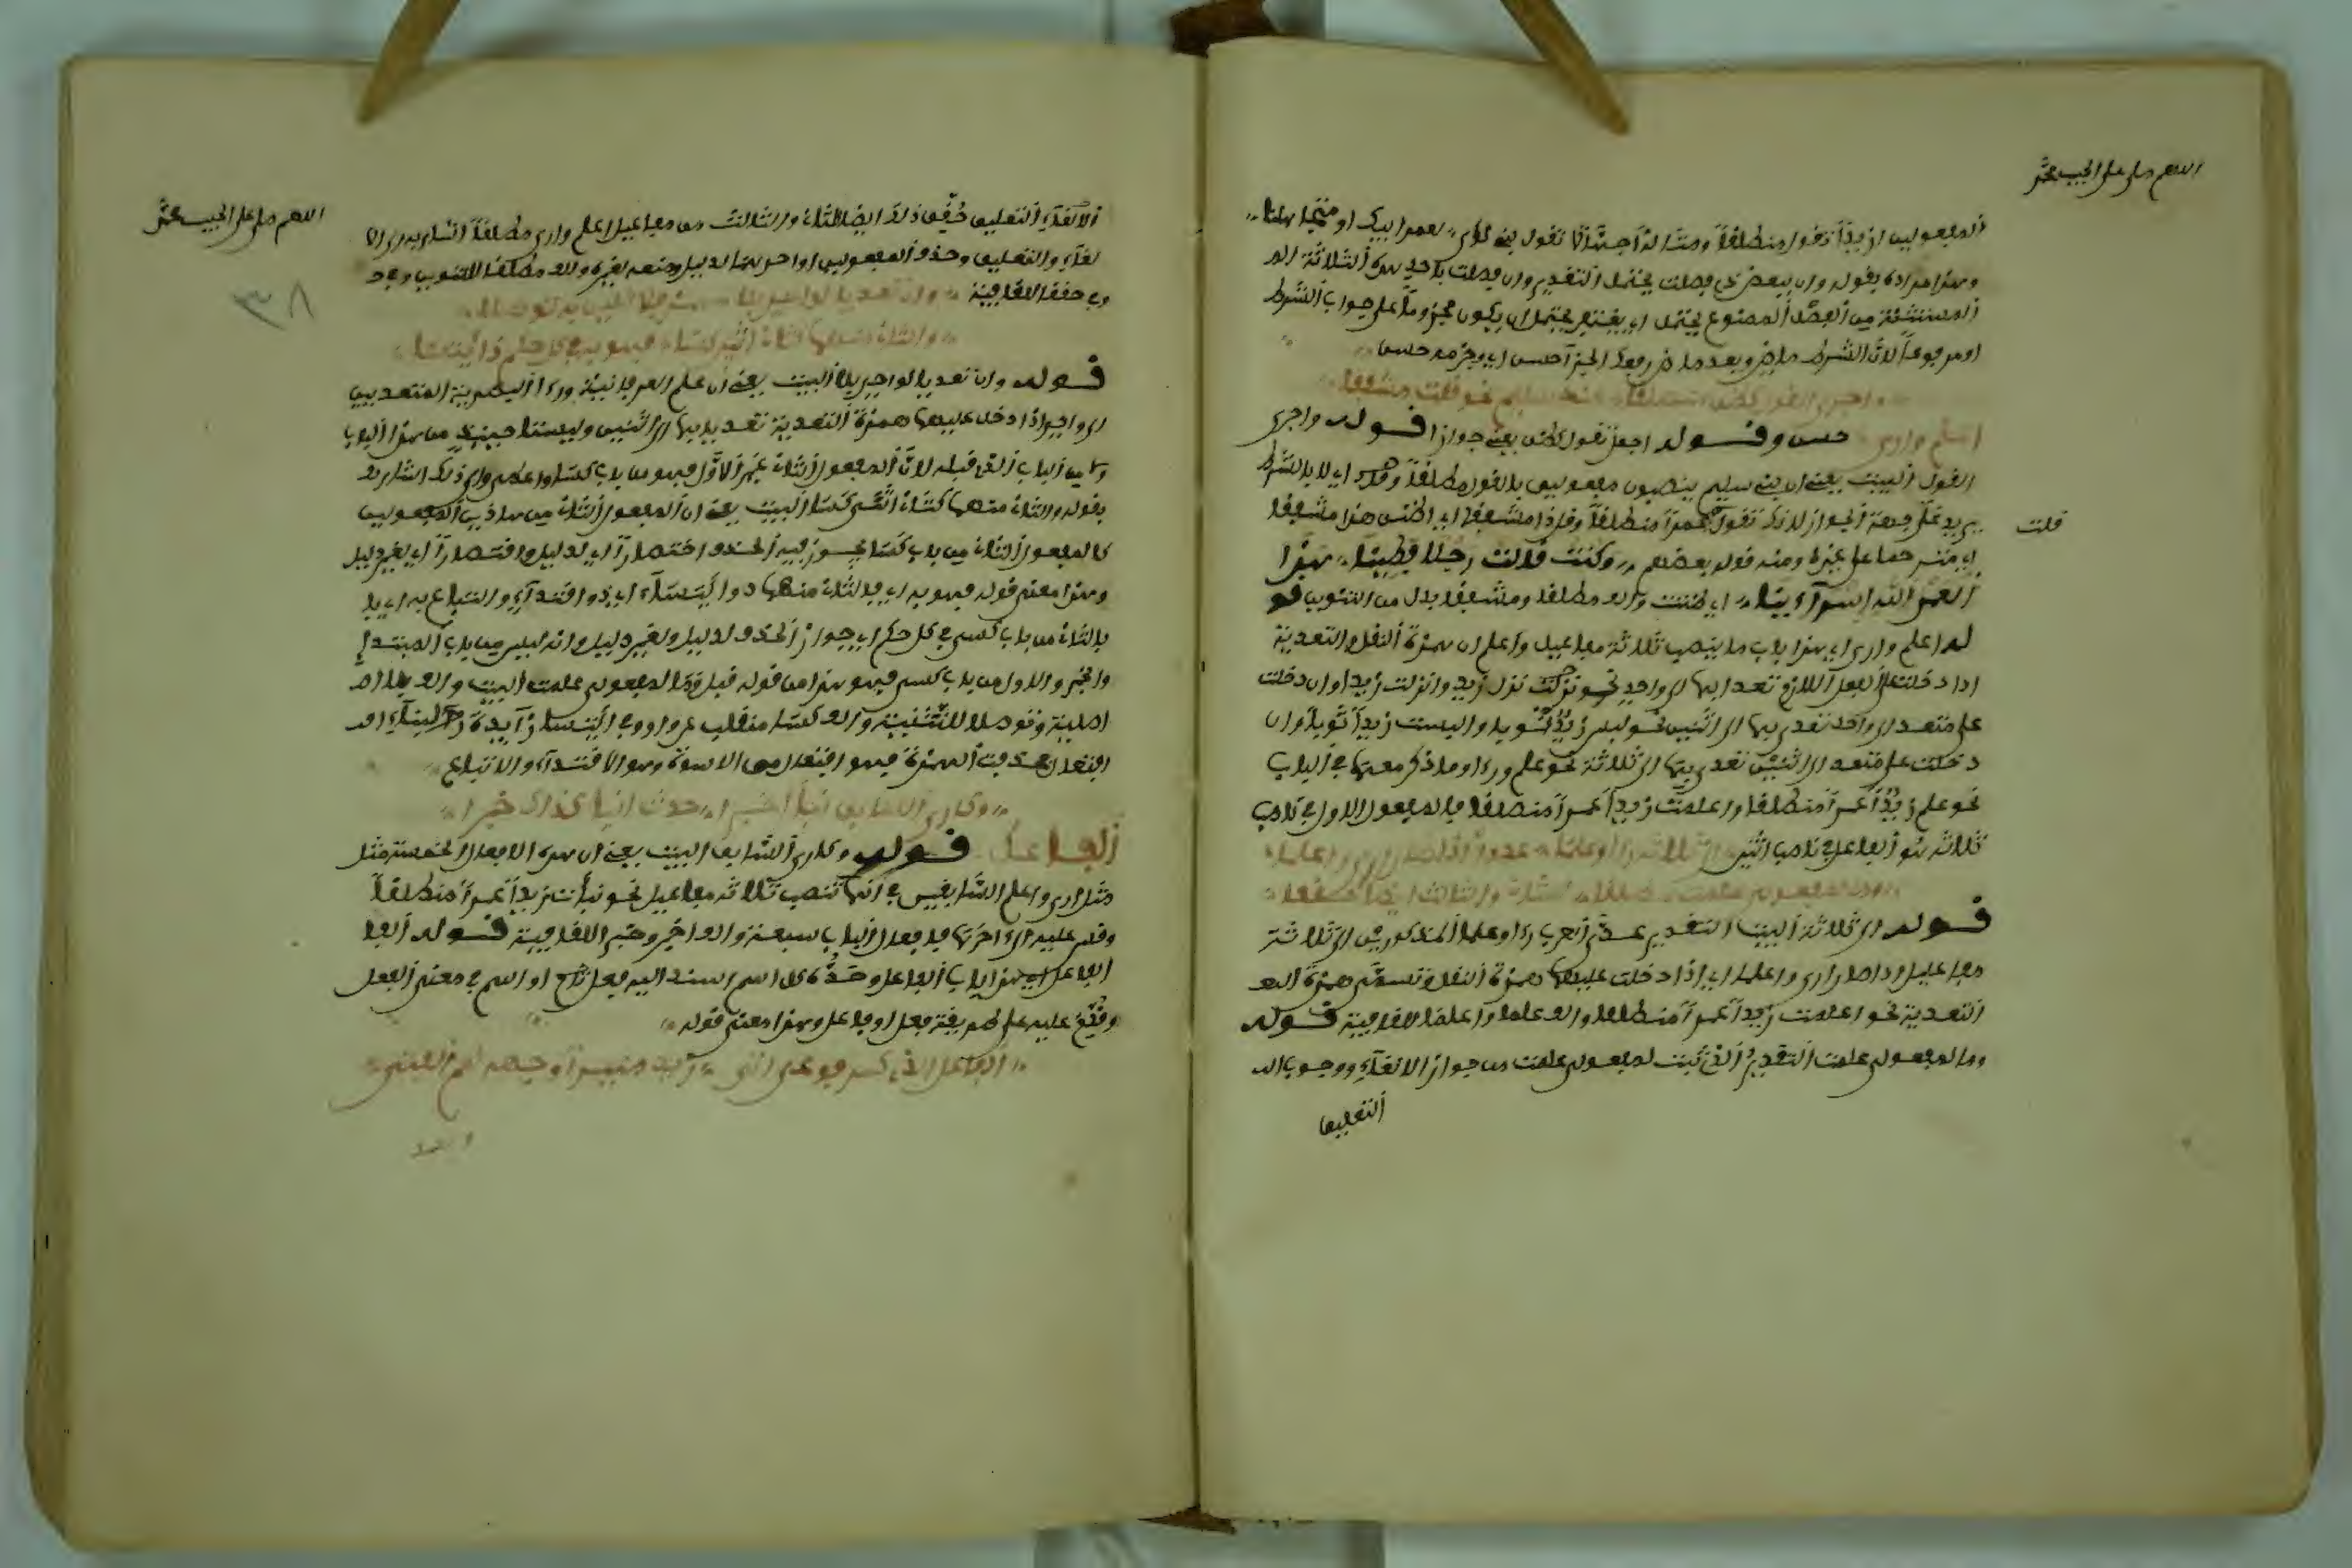 اللهم صل على الحبيب محمد
المفعولين ازيدا تقول منطلقا ومثاله اجهالا تقول بني لؤي لعمر ابيك او متجاهلنا
وهذا مراده بقوله وان ببعض ذي فصلت يحتمل التقدير وان فصلت باحد هذه الثلاثة الم
المستثناة من الفصل الممنوع يحتمل اي يغتفر يحتمل ان يكون مجزوما على جواب الشرط
او مرفوعا لان الشرط ماض وبعد ماض رفعك الجزا حسن اي وجزمه حسن
واجري القول كظن مطلقا عند سليم نحو قل ذا مشفقا
اعلم وارى
حسن وقوله اجعل تقول كظن يعني جوازا قوله واجري
القول البيت يعني ان بني سليم ينصبون مفعولين بالقول مطلقا وقوله اي لا بالشرط
قلت
يريد على جهة الجواز لذلك تقول عمرا منطلقا وقل ذا مشفقا اي اظن هذا مشفقا
ومنه قول بعضهم وكنت قالت رجلا فطينا هذا
لعمر الله اسرآءينا اي ظننت والف مطلقا ومشفقا بدل من التنوين قو
له اعلم وارى اي هذا باب ما ينصب ثلاثة مفاعيل واعلم ان همزة النقل والتعدية
اذا دخلت على الفعل اللازم تعدا بها الى واحد نحو نزل زيد وانزلت زيدا وان دخلت
على متعد الى واحد تعدى بها الى اثنين نحو لبس زيد ثوبا والبست زيدا ثوبا وان
دخلت على متعد الى اثنين تعدى بها الى ثلاثة نحو علم ورءا وما ذكر معها في الباب
نحو علم زيد عمرا منطلقا واعلمت زيدا عمرا منطلقا فالمفعول الاول في ناصب
ثلاثة هو الفاعل في ناصب اثنين الى ثلاثة رءا وعلما عدوا اذا صارا ارى واعلما
وما لمفعولي علمت مطلقا للثان والثالث ايضا حققا
قوله الى ثلاثة البيت التقدير عدى العرب رءا وعلما المذكورين الى ثلاثة
مفاعيل اذا صارا ارى واعلما اي اذا دخلت عليهما همزة النقل وتسمى همزة التعد
التعدية نحو اعلمت زيدا عمرا منطلقا والف علما واعلما للقافية قوله
وما لمفعولي علمت التقدير الذي ثبت لمفعولي علمت من جواز الالغاء ووجوب الـ
التعليق
اللهم صل على الحبيب محمد
٣٨
الالغاء التعليق حقق ذلك ايضا للثان والثالث من مفاعيل اعلم وارى مطلقا اشار به الى الا
لغاء والتعليق وحذف المفعولين او احدهما لدليل ومنعه لغيره والف مطلقا للتنوين وفي
وفي حققا للقافية وان تعديا لواحد بلا همز فلاثنين به توصلا
والثان منهما كثان اثني كسا فهو به في كل حكم ذو ائتسا
قوله وان تعديا لواحد بلا البيت يعني ان علم العرفانية ورءا البصرية المتعديين
الى واحد اذا دخل عليهما همزة التعدية تعديا بها الى اثنين وليستا حينئذ من هذا الباب
ولا من الباب الذي قبله لان المفعول الثان غير الاول فهو من باب كسا واعطى والى ذلك اشار
بقوله والثان منهما كثان اثني كسا البيت يعني ان المفعول الثان من هاذين المفعولين
كالمفعول الثان من باب كسا يجوز فيه الحذف اختصارا اي لدليل واقتصارا اي لغير دليل
وهذا معنى قوله فهو به اي بالثان منهما ذو ائتساء اي ذو اقتداء واتباع به اي با
بالثان من باب كسى في كل حكم اي جواز الحذف لدليل ولغير دليل وانه ليس من باب المبتدإ
والخبر والاول من باب كسى فهو هذا من قوله قبل وما لمفعولي علمت البيت والف
اصلية وتوصلا للتثنية والف كسا منقلب عن واو وفي ائتسا زآيدة
افتعل فهو افتعل من الاسوة وهو الاقتداء والاتباع
وكأرى السابق نبا اخبرا حدث انبا كذاك خبرا
الفاعل قوله وكأرى السابق البيت يعني ان هذه الافعال الخمسة مثل
مثل ارى واعلم السابقين في انها تنصب ثلاثة مفاعيل نحو نبأت زيدا عمرا منطلقا
وقس عليه فافعال الباب سبعة والف اخبر وخبر للقافية قوله الفا
الفاعل اي هذا باب الفاعل وحده كل اسم اسند اليه فعل تام او اسم في معنى الفعل
وقدم عليه على طريقة فعل او فاعل وهذا معنى قوله
الفاعل الذي كمرفوعي اتى زيد منيرا وجهه نعم الفتى